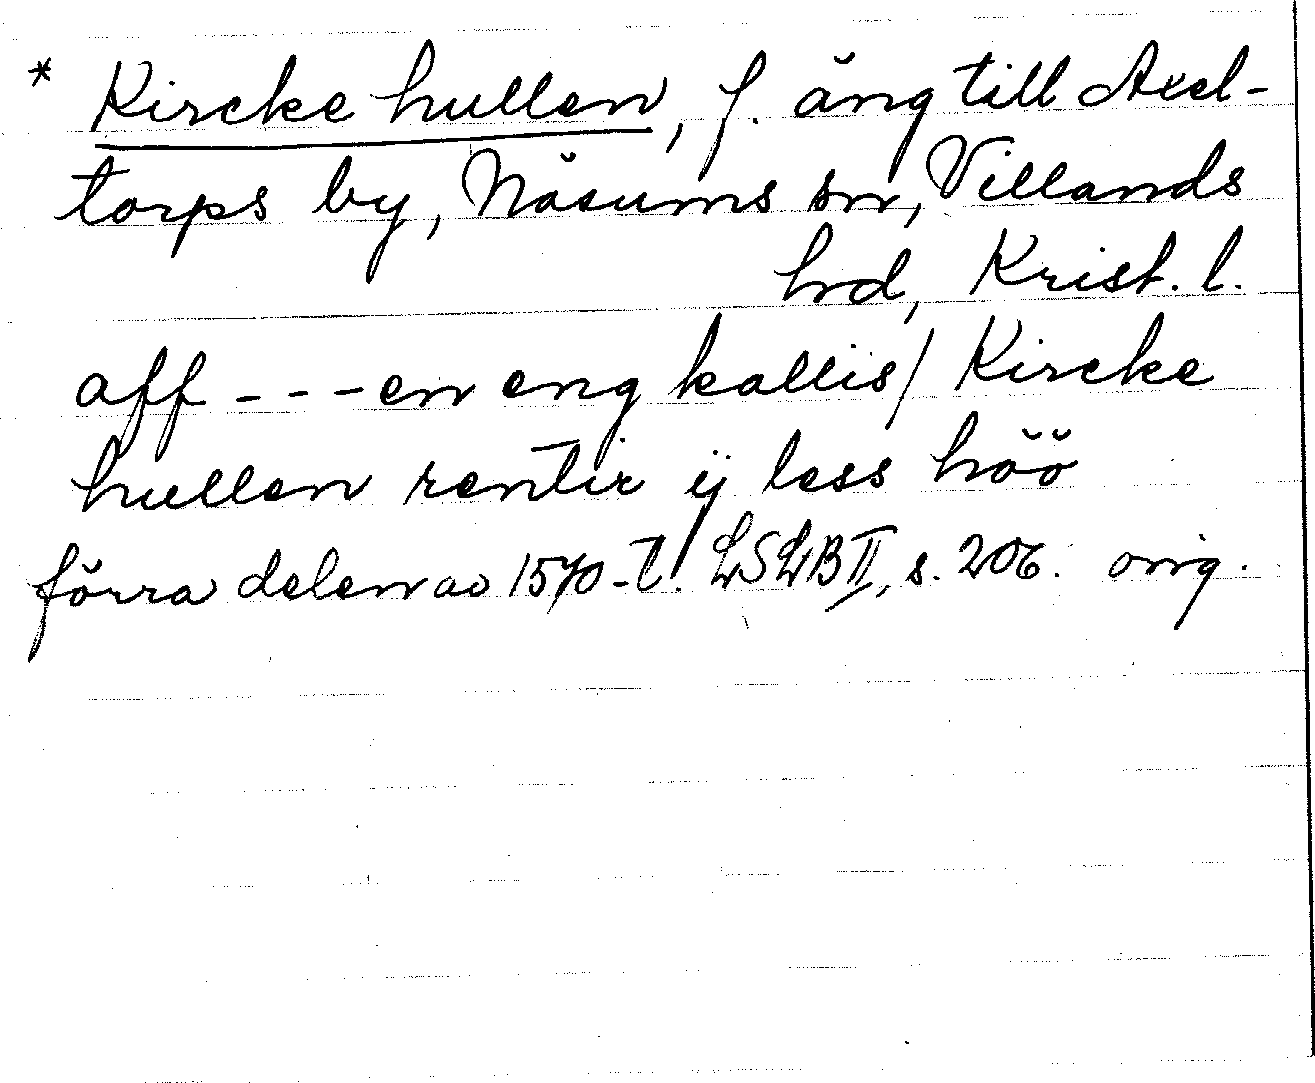 * Kircke hullen, f. äng till Axel-
torps by, Näsums sn, Villands
hrd, Krist. l.
aff - - - en eng kallis/ Kircke
hullen rentir ij less höö
förra delen av 1570-t. LSLB II, s. 206. orig.